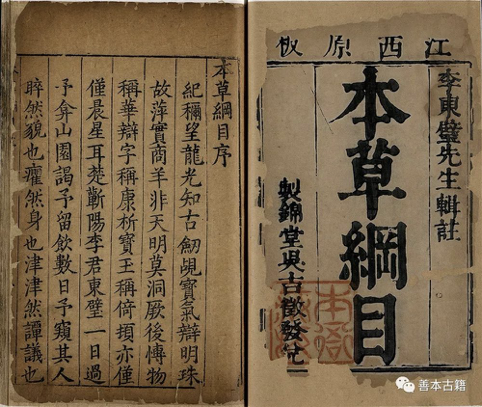 江西原板
李東璧先生輯註
本草綱目
製錦堂吳古徵發兌
本草綱目序
紀稱望龍光知古劒覘寳氣辯明珠
故萍實商羊非天明莫洞厥後愽物
稱華辯字稱康析寳玉稱倚頓亦僅
僅晨星耳楚蘄陽李君東璧一日過
予弇山園謁予留飲數日予窺其人
睟然貌也癯然身也津津然譚議也
善本古籍